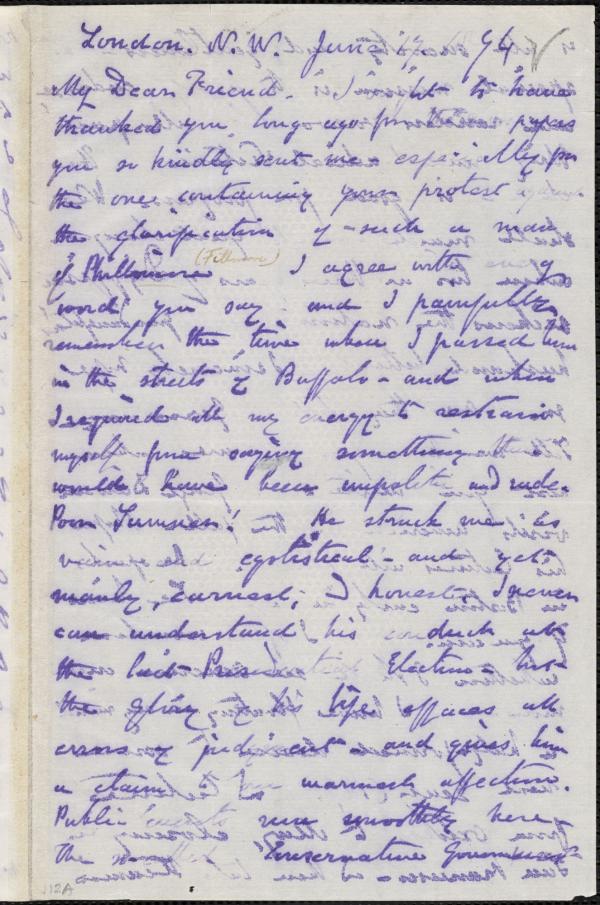 London. N. W. June 74
My Dear Friend. I ought to have
thanked you long ago for the papers
you so kindly sent me especially for
the one, containing your protest against
the glorification of such a man
(Fillmore)
of Phillmore I agree with
word you say and I painfully
remember the time when I passed him
in the streets of Buffalo - and when
I required all my energy to restrain
myself from saying something that
would have been impolite and rude.
Poor Sumner! He struck me as
egotistical - and yet
manly, earnest, I honest I never
can understand his conduct at
the last Presidential Election - but
the glory of his life effaces all
errors of judgment - and gives him
a claim to our warmest affection.
Public events run smoothly here -
The Conservative Government
112A